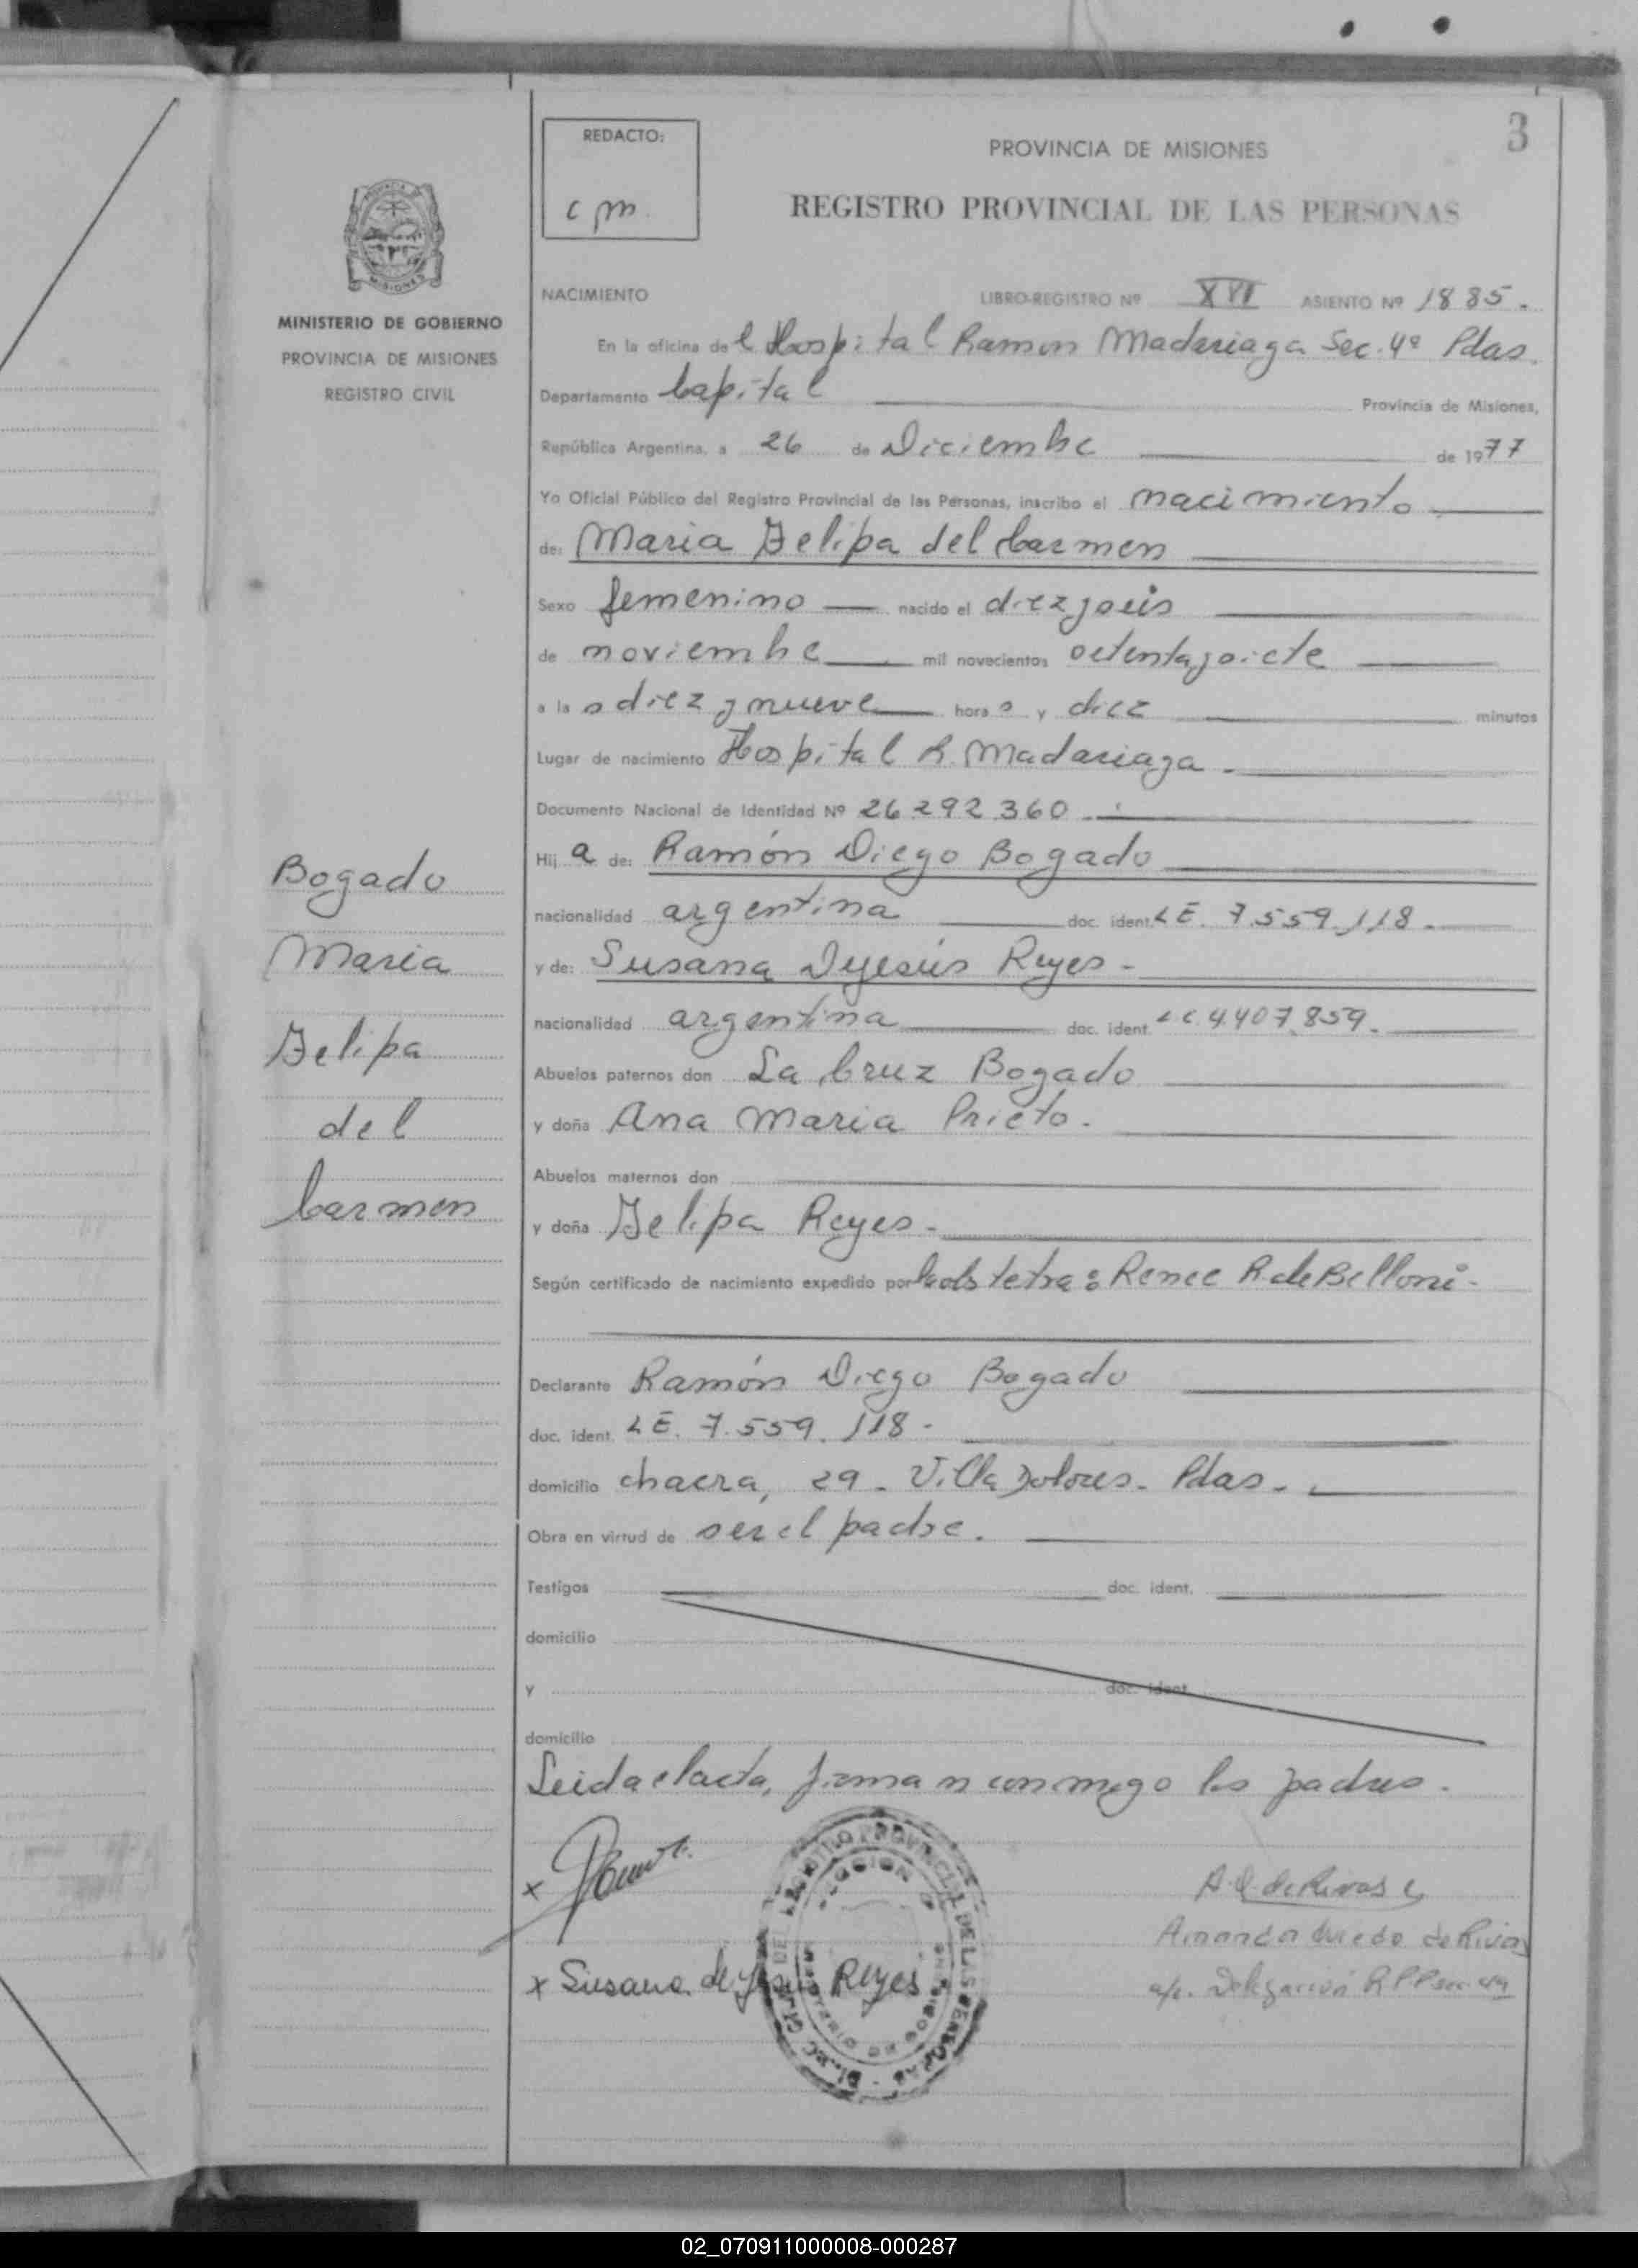 3
REDACTO:
c m.
PROVINCIA DE MISIONES
REGISTRO PROVINCIAL DE LAS PERSONAS
MINISTERIO DE GOBIERNO
PROVINCIA DE MISIONES
REGISTRO CIVIL
Bogado
Maria
Felipa
del
Carmen
NACIMIENTO LIBRO-REGISTRO Nº XVI ASIENTO Nº 1885.
En la oficina del Hospital Ramon Madariaga Sec. 4ª Pdas.
Departamento Capital Provincia de Misiones,
República Argentina, a 26 de Diciembre de 1977
Yo Oficial Público del Registro Provincial de las Personas, inscribo el nacimiento
de: Maria Felipa del Carmen
Sexo femenino nacido el diezyseis
de noviembre mil novecientos setentaysiete
a las diez y nueve horas y diez minutos
Lugar de nacimiento Hospital R. Madariaga.
Documento Nacional de Identidad Nº 26.292.360.
Hija de: Ramón Diego Bogado
nacionalidad argentina doc. ident. LE. 7.559.118.
y de: Susana Dejesús Reyes-
nacionalidad argentina doc. ident. LC. 4.407.859.
Abuelos paternos don La Cruz Bogado
y doña Ana Maria Prieto.
Abuelos maternos don
y doña Felipa Reyes-
Según certificado de nacimiento expedido por la obstetra: Renee R. de Belloni-
Declarante Ramón Diego Bogado
doc. ident. LE. 7.559.118-
domicilio chacra, 29- Villa Dolores- Pdas-
Obra en virtud de ser el padre.
Testigos doc. ident.
domicilio
y doc. ident.
domicilio
Leida el acta, firman conmigo los padres.
x
x Susana de Jesus Reyes
de Rivas
Amanda de Rivas
a/c. Delegación
02_070911000008-000287